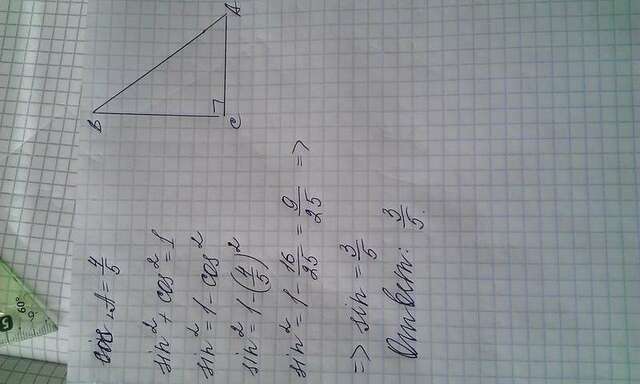 B
A
C
cos A = 4/5
sin² + cos² = 1
sin² = 1 - cos²
sin² = 1 - (4/5)²
sin² = 1 - 16/25 = 9/25 =>
=> sin = 3/5
Ответ: 3/5.
60°